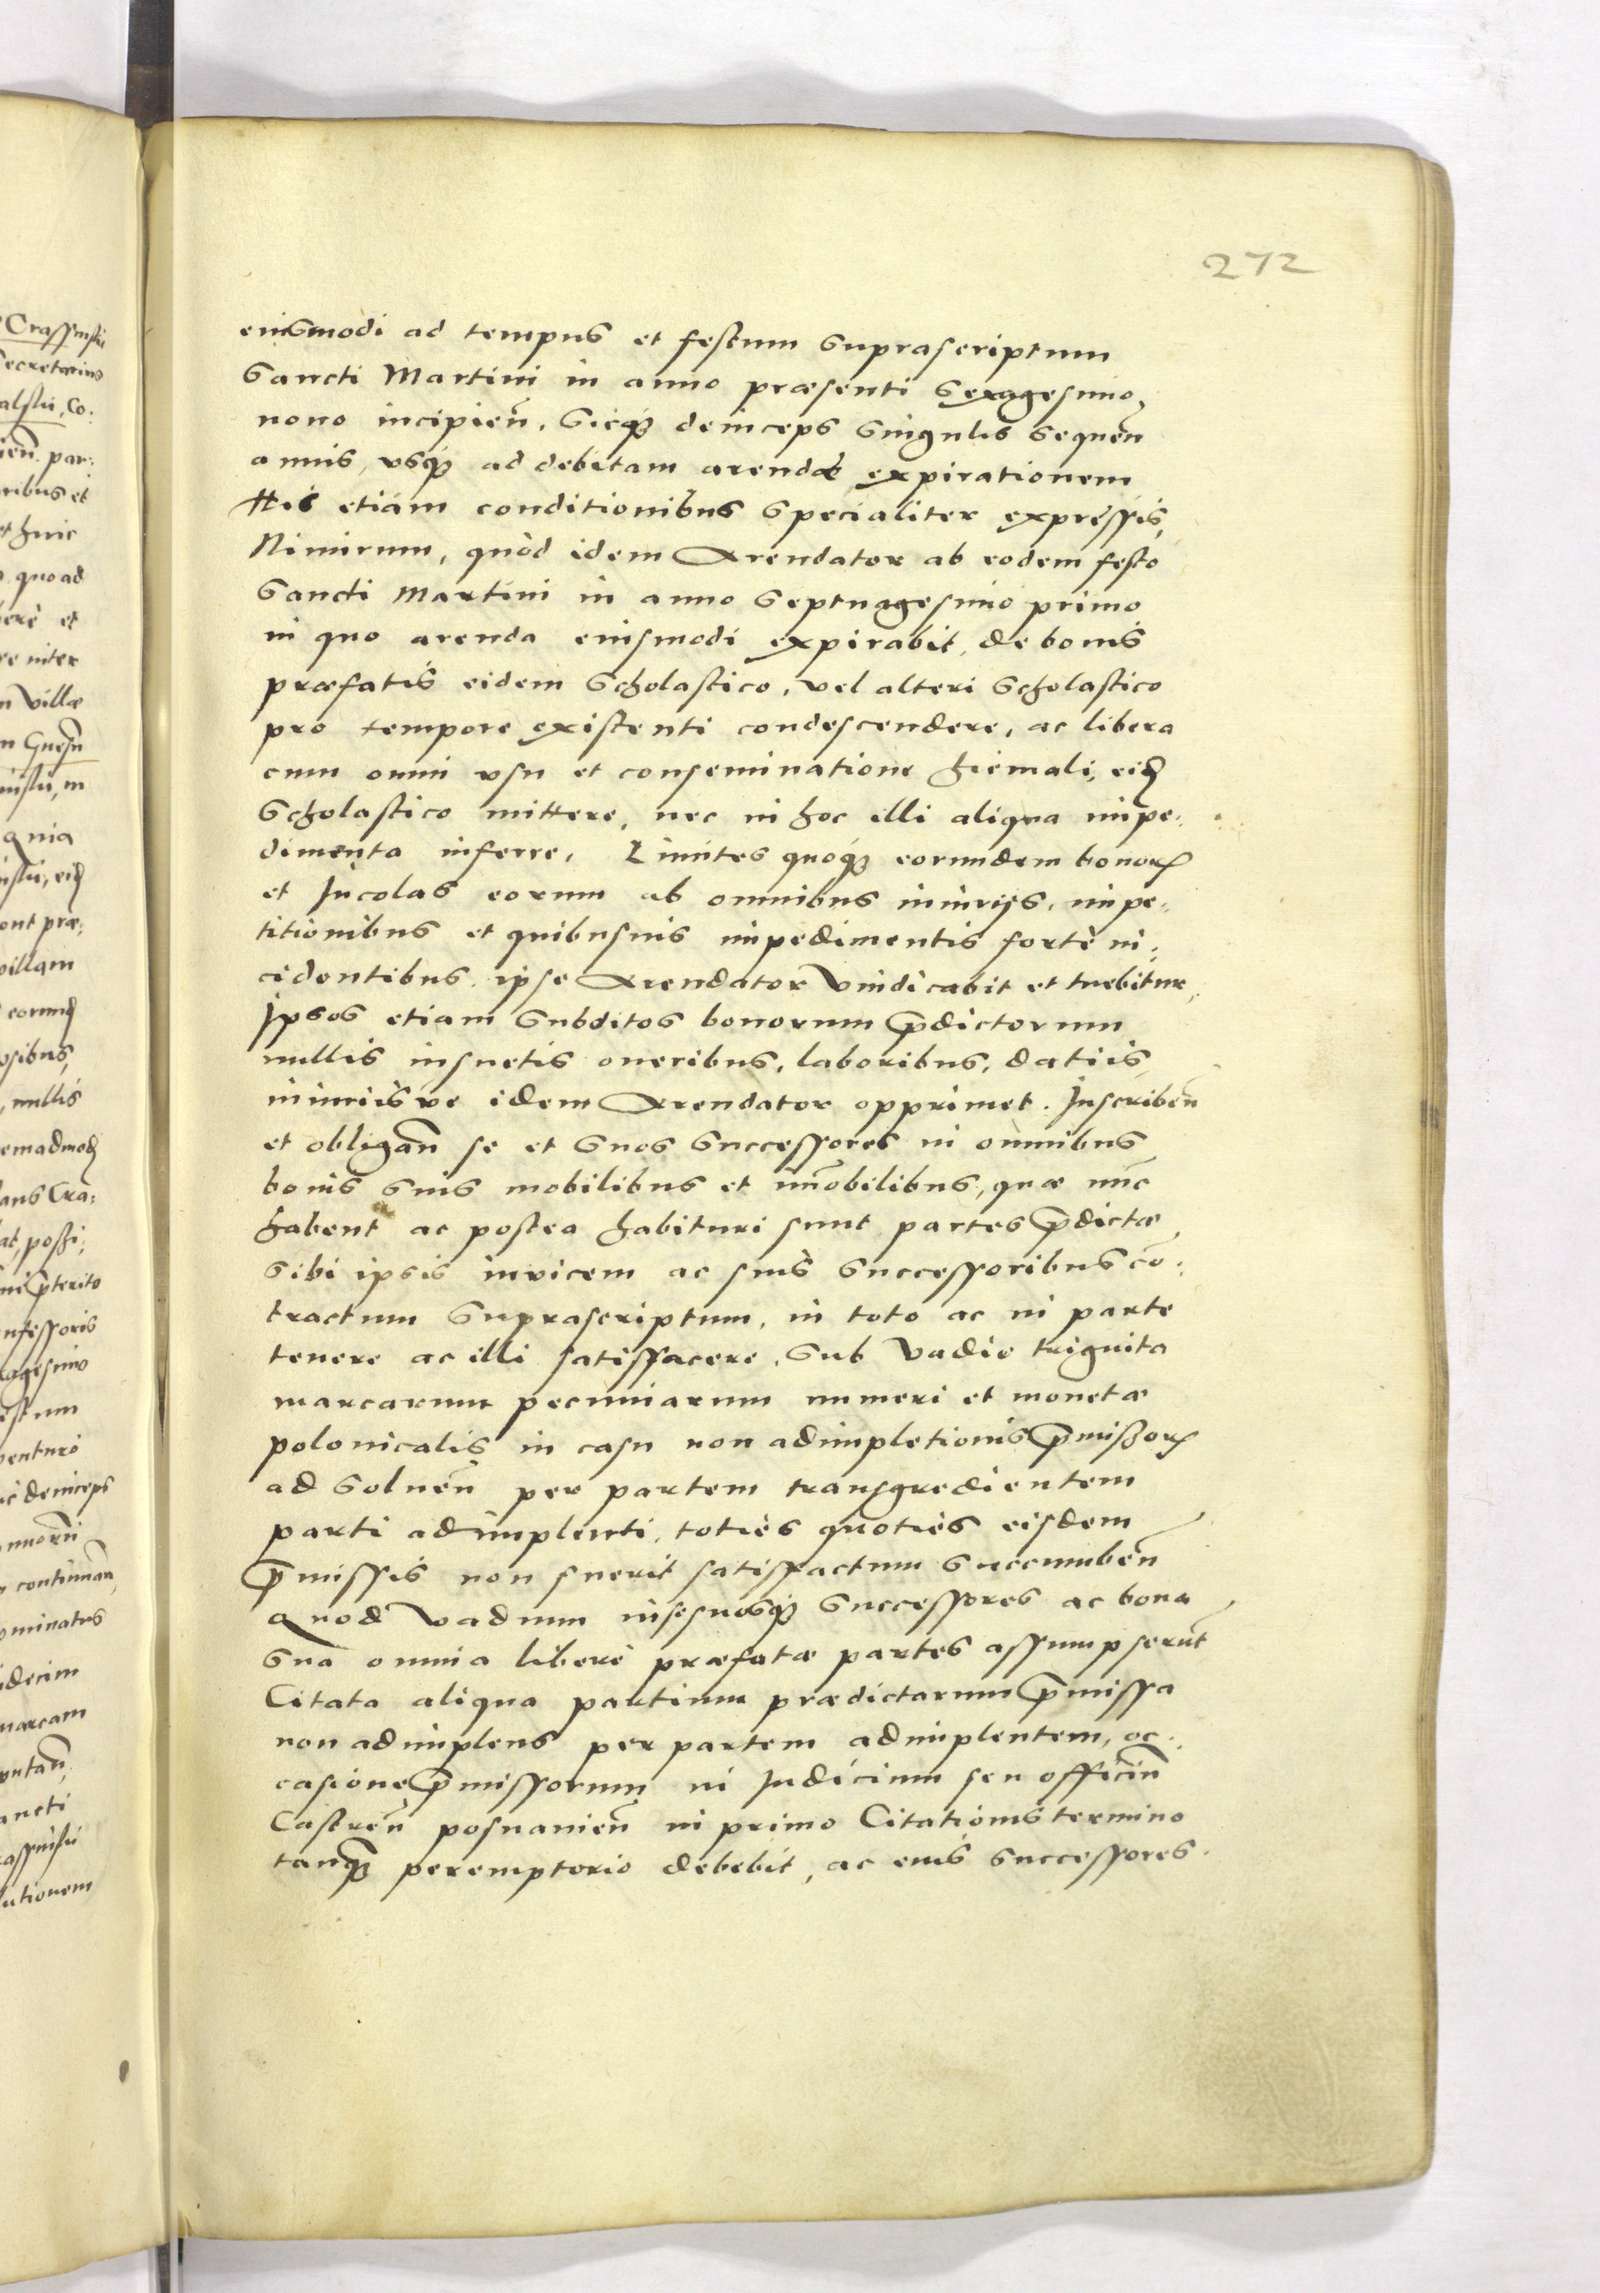 272
eiusmodi ad tempus et festum suprascriptum
Sancti Martini in anno præsenti sexagesimo
nono incipien̄. Sicq; deinceps singulis sequen̄
annis, vsq; ad debitam arendæ expirationem
His etiam conditionibus specialiter expressis,
Nimirum, quòd idem Arendator ab eodem festo
Sancti Martini in anno septuagesimo primo
in quo arenda eiusmodi expirabit, de bonis
præfatis eidem Scholastico, vel alteri Scholastico
pro tempore existenti condescendere, ac libera
cum omni vsu et conseminatione hiemali, eid
Scholastico mittere, nec in hoc illi aliqua impe:
dimenta inferre, Limites quoq; eorundem bonorꝝ
et Incolas eorum ab omnibus iniurijs, impe:
titionibus et quibusuis impedimentis fortè in:
cidentibus ipse Arendator vindicabit et tuebitur,
Ipsos etiam subditos bonorum p̄dictorum
nullis insuetis oneribus, laboribus, datiis,
iniuriis ve idem Arendator opprimet. Inscriben̄
et obligan̄ se et suos successores in omnibus
bonis suis mobilibus et im̄obilibus, quæ nūc
habent ac postea habituri sunt partes p̄dictæ
sibi ipsis invicem ac suis successoribus cō:
tractum suprascriptum, in toto ac in parte
tenere ac illi satisfacere, sub vadio triginta
marcarum pecuniarum numeri et monetæ
polonicalis in casu non adimpletionis p̄missorꝝ
ad soluen̄ per partem transgredientem
parti adimplenti, toties quoties eisdem
p̄missis non fuerit satisfactum succumben̄
Quod vadium in se suosq; successores ac bona
sua omnia liberè præfatæ partes assumpserūt
Citata aliqua partium prædictarum p̄missa
non adimplens per partem adimplentem, oc:
casione p̄missorum in Iudicium seu officiū
Castren̄ posnanien̄ in primo Citationis termino
tanq; peremptorio debebit, ac eius successores.